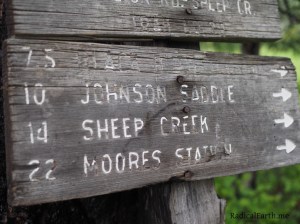 SHEEP CR.
7.5
10 JOHNSON SADDLE
14 SHEEP CREEK
22 MOORES STATION
RadicalEarth.me